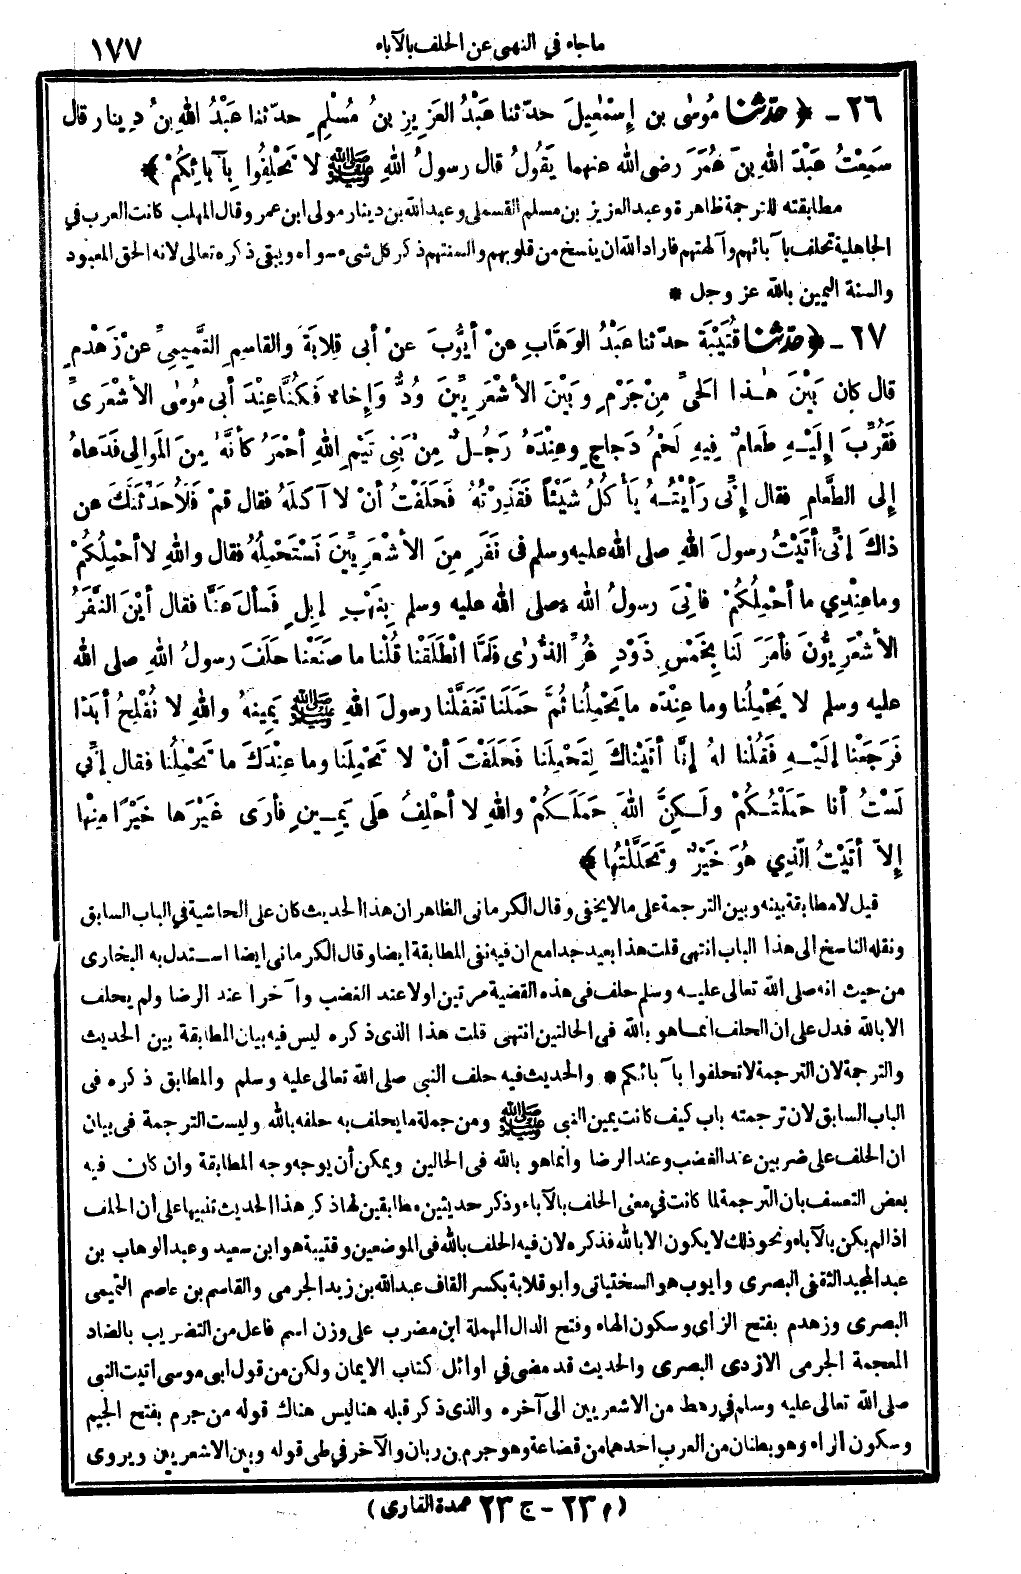 ما جاء في النهى عن الحلف بالآباء ١٧٧
٢٦ - ﴿ حَدَّثنا مُوسٰى بن إِسْمٰعِيلَ حدّثنا عَبْدُ العَزِيزِ بنُ مُسْلِمٍ حدّثنا عَبْدُ اللهِ بنُ دِينار قال
سَمِعْتُ عَبْدَ اللهِ بنَ عُمَرَ رضى الله عنهما يَقُولُ قال رسولُ اللهِ ﷺ لا تَحْلِفُوا بِآبائِكُمْ ﴾
مطابقته للترجمة ظاهرة وعبد العزيز بن مسلم القسملى وعبد الله بن دينار مولى ابن عمر وقال المهلب كانت العرب في
الجاهلية تحلف بآبائهم وآلهتهم فاراد الله ان ينسخ من قلوبهم والسنتهم ذكر كل شيء سواه ويبقى ذكره تعالى لانه الحق المعبود
والسنة اليمين بالله عز وجل *
٢٧ - ﴿ حَدَّثنا قُتَيْبَةُ حدّثنا عَبْدُ الوَهَّابِ عنْ أيُّوبَ عنْ أبى قِلابَةَ والقاسِمِ التَّمِيمِيِّ عنْ زَهْدَمٍ
قال كان بَيْنَ هٰذا الحَىِّ مِنْ جَرْمٍ وبَيْنَ الأشْعَرِيِّينَ وُدٌّ وَإخاء فَكُنَّا عِنْدَ أبى مُوسٰى الأشْعَرِىِّ
فَقُرِّبَ إِلَيْهِ طَعامٌ فِيهِ لَحْمُ دَجاجٍ وعِنْدَهُ رَجُلٌ مِنْ بَنِى تَيْمِ اللهِ أحْمَرُ كَأنَّهُ مِنَ المَوالى فَدَعاهُ
إلى الطَّعامِ فقال إنِّى رَأيْتُهُ يَأْكُلُ شَيْئاً فَقَذِرْتُهُ فَحَلَفْتُ أنْ لا آكُلَهُ فقال قُمْ فَلَأُحَدِّثَنَّكَ عن
ذاكَ إنِّى أتَيْتُ رسولَ اللهِ صلى الله عليه وسلم فى نَفَرٍ مِنَ الأشْعَرِيِّينَ نَسْتَحْمِلُهُ فقال واللهِ لا أحْمِلُكُمْ
وما عِنْدِي ما أحْمِلُكُمْ فأُتِىَ رسولُ اللهِ صلى الله عليه وسلم بِنَهْبِ إبِلٍ فَسألَ عَنَّا فقال أيْنَ النَّفَرُ
الأشْعَرِيُّونَ فأمَرَ لَنا بِخَمْسِ ذَوْدٍ غُرِّ الذُّرَى فَلمَّا انْطَلَقْنا قُلْنا ما صَنَعْنا حَلَفَ رسولُ اللهِ صلى الله
عليه وسلم لا يَحْمِلُنا وما عِنْدَه ما يَحْمِلُنا ثُمَّ حَمَلَنا تَغَفَّلْنا رسولَ اللهِ ﷺ يَمِينَهُ واللهِ لا نُفْلِحُ أبَدًا
فَرَجَعْنا إلَيْهِ فَقُلْنا لهُ إنَّا أتَيْناكَ لِتَحْمِلَنا فَحَلَفْتَ أنْ لا تَحْمِلَنا وما عِنْدَكَ ما تَحْمِلُنا فقال إنِّي
لَسْتُ أنا حَمَلْتُكُمْ ولَكِنَّ اللهَ حَمَلَكُمْ واللهِ لا أحْلِفُ عَلَى يَمِينٍ فأرَى غَيْرَها خَيْرًا مِنْها
إلاّ أتَيْتُ الَّذِي هُوَ خَيْرٌ وتَحَلَّلْتُها ﴾
قيل لا مطابقة بينه وبين الترجمة على ما لا يخفى وقال الكرمانى الظاهر ان هذا الحديث كان على الحاشية في الباب السابق
ونقله الناسخ الى هذا الباب انتهى قلت هذا بعيد جدا مع ان فيه نفى المطابقة ايضا وقال الكرمانى ايضا استدل به البخارى
من حيث انه صلى الله تعالى عليه وسلم حلف فى هذه القضية مرتين اولا عند الغضب وآخرا عند الرضا ولم يحلف
الا بالله فدل على ان الحلف انما هو بالله فى الحالتين انتهى قلت هذا الذى ذكره ليس فيه بيان المطابقة بين الحديث
والترجمة لان الترجمة لا تحلفوا بآبائكم * والحديث فيه حلف النبى صلى الله تعالى عليه وسلم والمطابق ذكره فى
الباب السابق لان ترجمته باب كيف كانت يمين النبى ﷺ ومن جملة ما يحلف به حلفه بالله وليست الترجمة فى بيان
ان الحلف على ضربين عند الغضب وعند الرضا وانما هو بالله فى الحالين ويمكن أن يوجه وجه المطابقة وان كان فيه
بعض التعسف بان الترجمة لما كانت في معنى الحلف بالآباء وذكر حديثين مطابقين لها ذكر هذا الحديث تنبيها على أن الحلف
اذا لم يكن بالآباء ونحو ذلك لا يكون الا بالله فذكره لان فيه الحلف بالله فى الموضعين وقتيبة هو ابن سعيد وعبد الوهاب بن
عبد المجيد الثقفى البصرى وايوب هو السختيانى وابو قلابة بكسر القاف عبد الله بن زيد الجرمى والقاسم بن عاصم التميمى
البصرى وزهدم بفتح الزاى وسكون الهاء وفتح الدال المهملة ابن مضرب على وزن اسم فاعل من التضريب بالضاد
المعجمة الجرمى الازدى البصرى والحديث قد مضى في اوائل كتاب الايمان ولكن من قول ابى موسى اتيت النبى
صلى الله تعالى عليه وسلم في رهط من الاشعريين الى آخره والذى ذكر قبله هنا ليس هناك قوله من جرم بفتح الجيم
وسكون الراء وهو بطنان من العرب احدهما من قضاعة وهو جرم بن ربان والآخر في طى قوله وبين الاشعريين ويروى
(م ٢٣ - ج ٢٣ عمدة القارى)